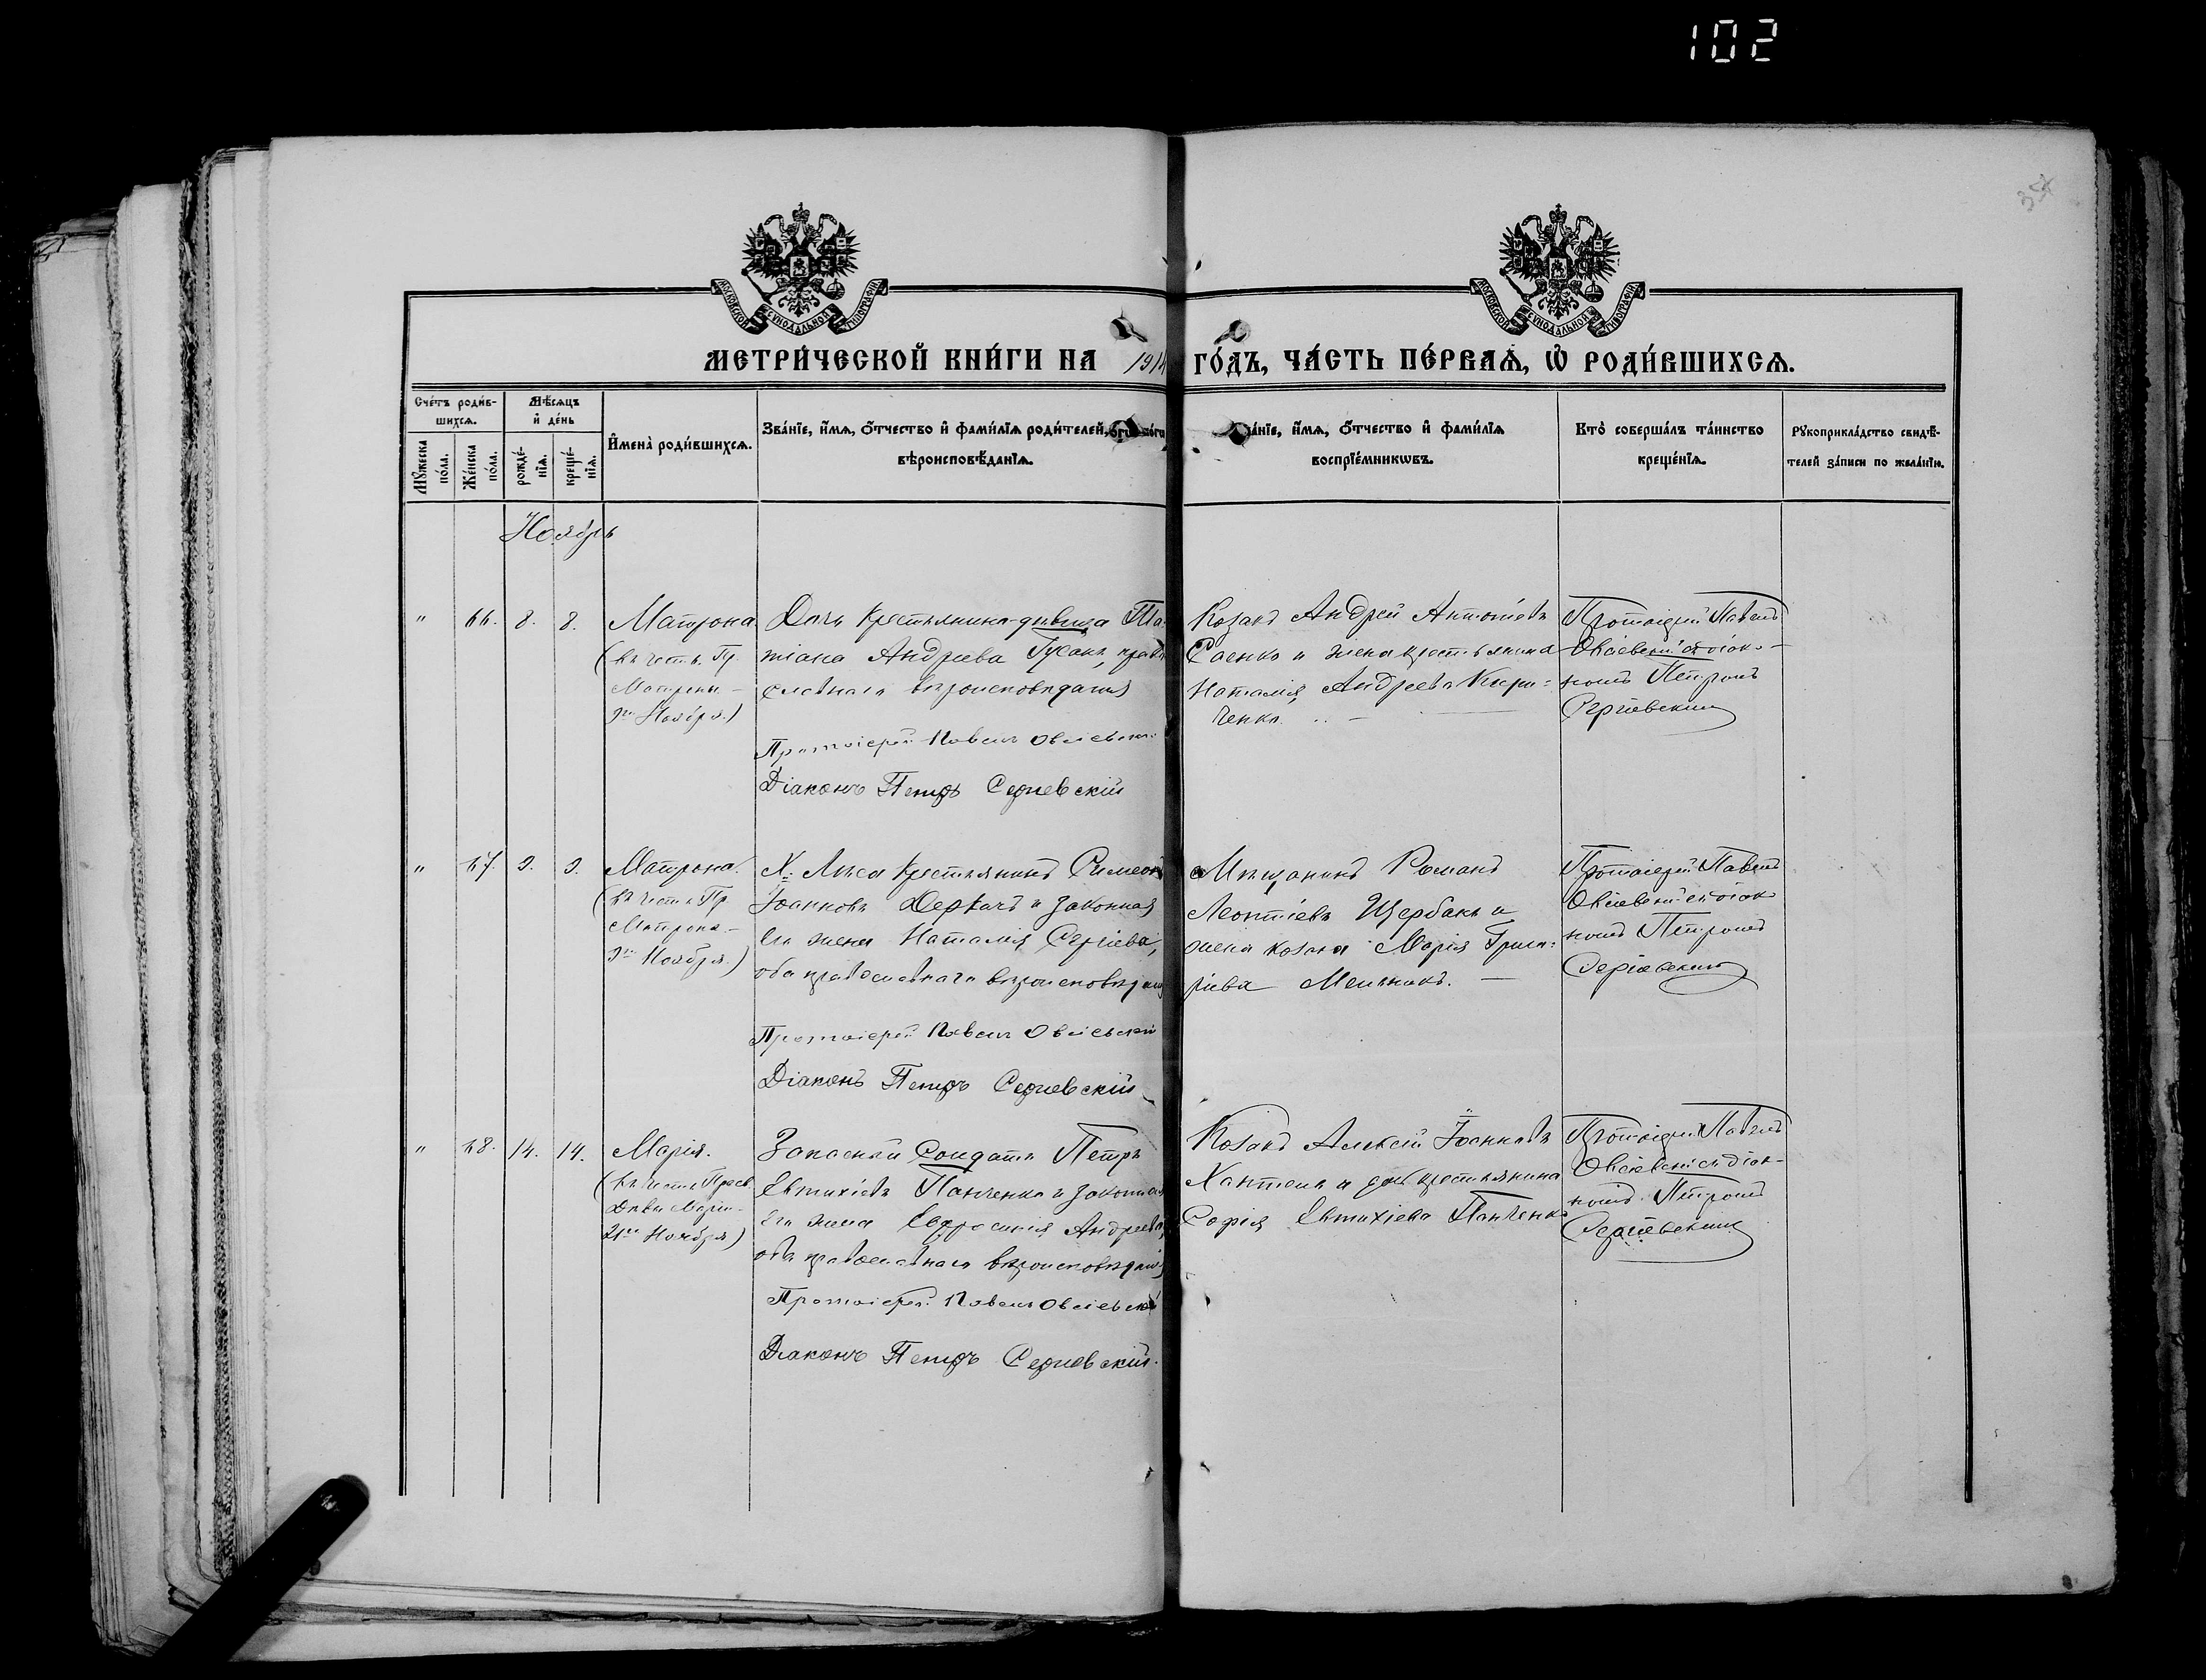 102
354
МОСКОВСКОЙ СѴНОДАЛЬНОЙ ТИПОГРАФІИ
МОСКОВСКОЙ СѴНОДАЛЬНОЙ ТИПОГРАФІИ
МЕТРИ́ЧЕСКОЙ КНИ́ГИ НА 1914 ГО́ДЪ, ЧА́СТЬ ПЕ́РВАѦ, Ѡ҆ РОДИ́ВШИХСѦ.
Сче́тъ роди́в-
шихсѧ.
Мꙋжеска по́ла.
Же́нска по́ла.
Мѣ́сѧцъ
и҆ де́нь
рожде́-
нїѧ.
креще́-
нїѧ.
И҆мена̀ роди́вшихсѧ.
Зва́нїе, и҆́мѧ, ѻ҆́тчество и҆ фами́лїѧ роди́телей,
вѣроисповѣ́данїѧ.
и҆́мѧ, ѻ҆́тчество и҆ фами́лїѧ
воспрїе́мникѡвъ.
Кто̀ соверша́лъ та́инство
креще́нїѧ.
Рꙋкоприкла́дство свидѣ́-
телей за́писи по жела́нїю.
Ноябрь
" 66. 8. 8. Матрона
(въ честь Пр.
Матроны
9го Ноября.)
Дочь крестьянина-дѣвица Та-
тіана Андреева Гусакъ, право-
славнаго вѣроисповѣданія
Протоіерей Павелъ Овсіевскій
Діаконъ Петръ Сергіевскій
Козакъ Андрей Антоніевъ
Саенко и жена крестьянина
Наталія Андреева Кири-
ченко.
Протоіерей Павелъ
Овсіевскій съ діако-
номъ Петромъ
Сергіевскимъ
" 67. 9. 9. Матрона.
(въ честь Пр.
Матроны
9го Ноября.)
Х. Лиса крестьянинъ Симеонъ
Іоанновъ Деркачъ и законная
его жена Наталія Сергіева,
оба православнаго вѣроисповѣданія
Протоіерей Павелъ Овсіевскій
Діаконъ Петръ Сергіевскій
Мѣщанинъ Романъ
Леонтіевъ Щербакъ и
жена козака Марія Григо-
ріева Мельникъ.
Протоіерей Павелъ
Овсіевскій съ діако-
номъ Петромъ
Сергіевскимъ
" 68. 14. 14. Марія.
(въ честь Пресв.
Дѣвы Маріи
21го Ноября)
Запасный Солдатъ Петръ
Евтихіевъ Панченко и законная
его жена Евфросинія Андреева,
оба православнаго вѣроисповѣданія
Протоіерей Павелъ Овсіевскій
Діаконъ Петръ Сергіевскій.
Козакъ Алексій Іоанновъ
и дочь крестьянина
Софія Евтихіева Панченко
Протоіерей Павелъ
Овсіевскій съ діако-
номъ Петромъ
Сергіевскимъ